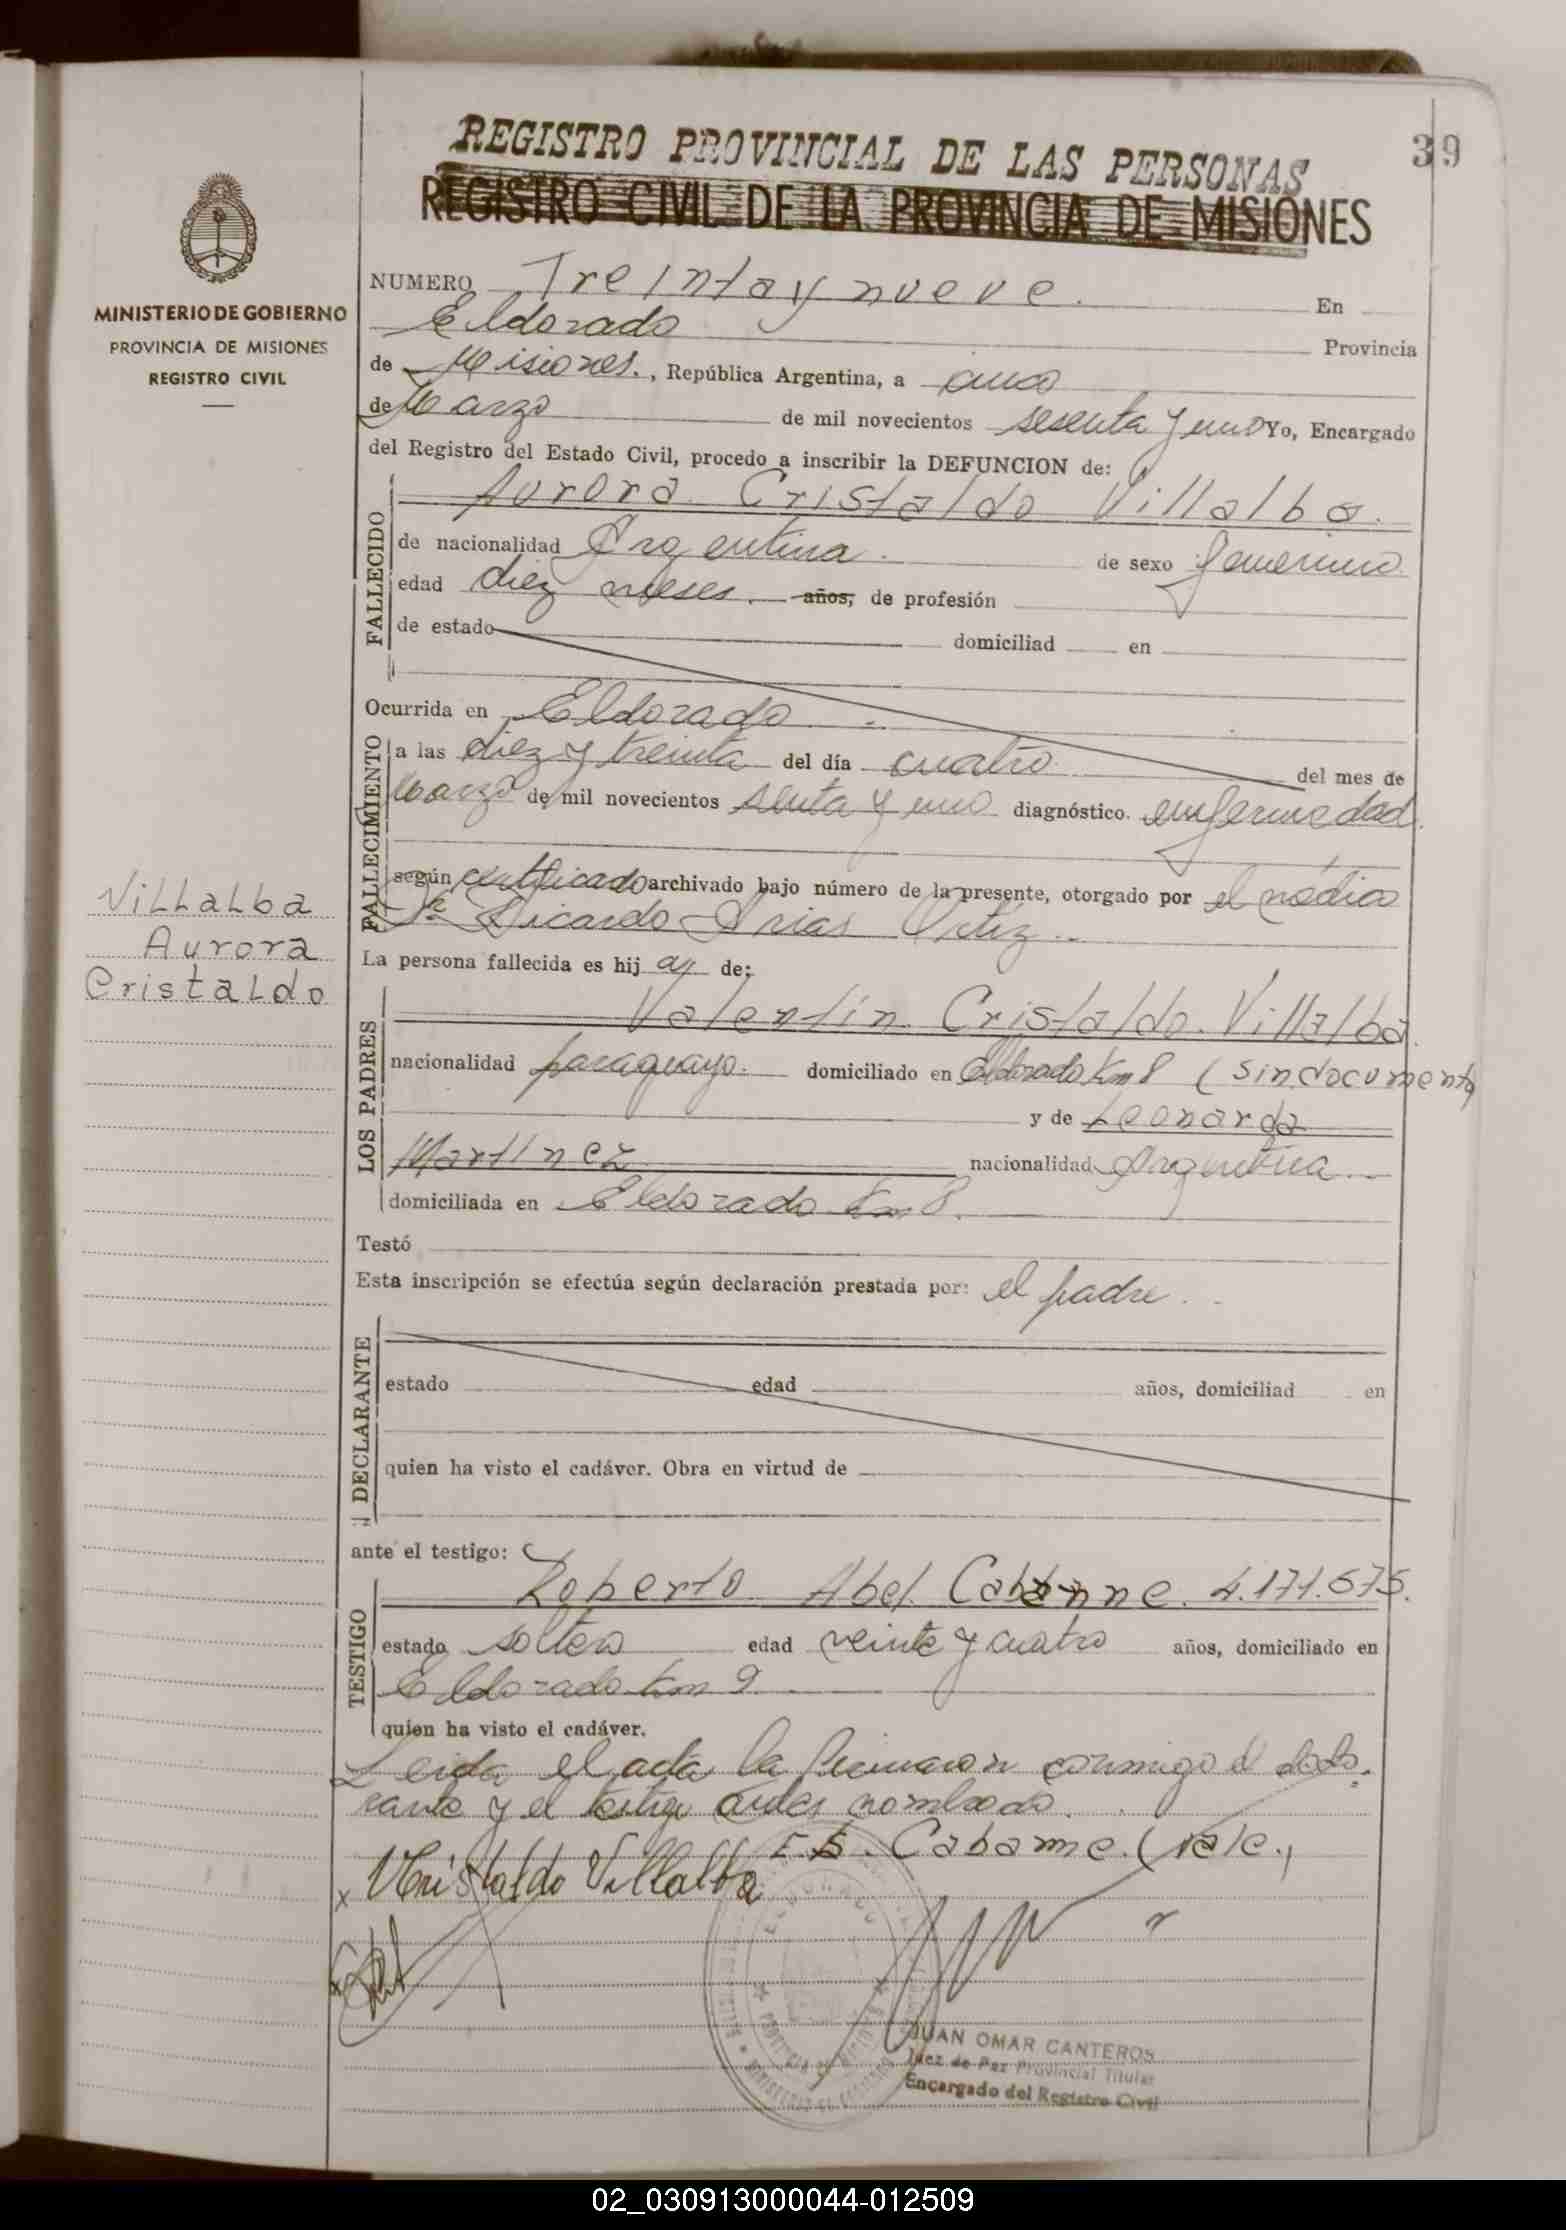 39
REGISTRO PROVINCIAL DE LAS PERSONAS
REGISTRO CIVIL DE LA PROVINCIA DE MISIONES
MINISTERIO DE GOBIERNO
PROVINCIA DE MISIONES
REGISTRO CIVIL
NUMERO Treinta y nueve. En
Eldorado Provincia
de Misiones., República Argentina, a cinco
de Marzo de mil novecientos sesenta y uno Yo, Encargado
del Registro del Estado Civil, procedo a inscribir la DEFUNCION de:
FALLECIDO
Aurora Cristaldo Villalba.
de nacionalidad Argentina. de sexo femenino
edad diez meses. años, de profesión
de estado domiciliad en
Ocurrida en Eldorado
FALLECIMIENTO
a las diez y treinta del día cuatro del mes de
Marzo de mil novecientos senta y uno diagnóstico. enfermedad.
según certificado archivado bajo número de la presente, otorgado por el médico
Dr Ricardo Arias Ortiz
La persona fallecida es hij a de:
Villalba
Aurora
Cristaldo
LOS PADRES
Valentín Cristaldo Villalba.
nacionalidad paraguayo. domiciliado en Eldorado Km 8 (sin documento)
y de Leonarda
Martinez nacionalidad Argentina
domiciliada en Eldorado Km 8.
Testó
Esta inscripción se efectúa según declaración prestada por: el padre.
DECLARANTE
estado edad años, domiciliad en
quien ha visto el cadáver. Obra en virtud de
ante el testigo:
TESTIGO
Roberto Abel Cabanne. 4.171.575.
estado soltero edad veinte y cuatro años, domiciliado en
Eldorado Km 9
quien ha visto el cadáver.
Leida el acta la firmaron conmigo el decla-
rante y el testigo antes nombrado.
E.L. Cabanne. (vale.)
x VCristaldo Villalba
x
ELDORADO
PROVINCIA DE MISIONES
JUAN OMAR CANTEROS
Juez de Paz Provincial Titular
Encargado del Registro Civil
02_030913000044-012509